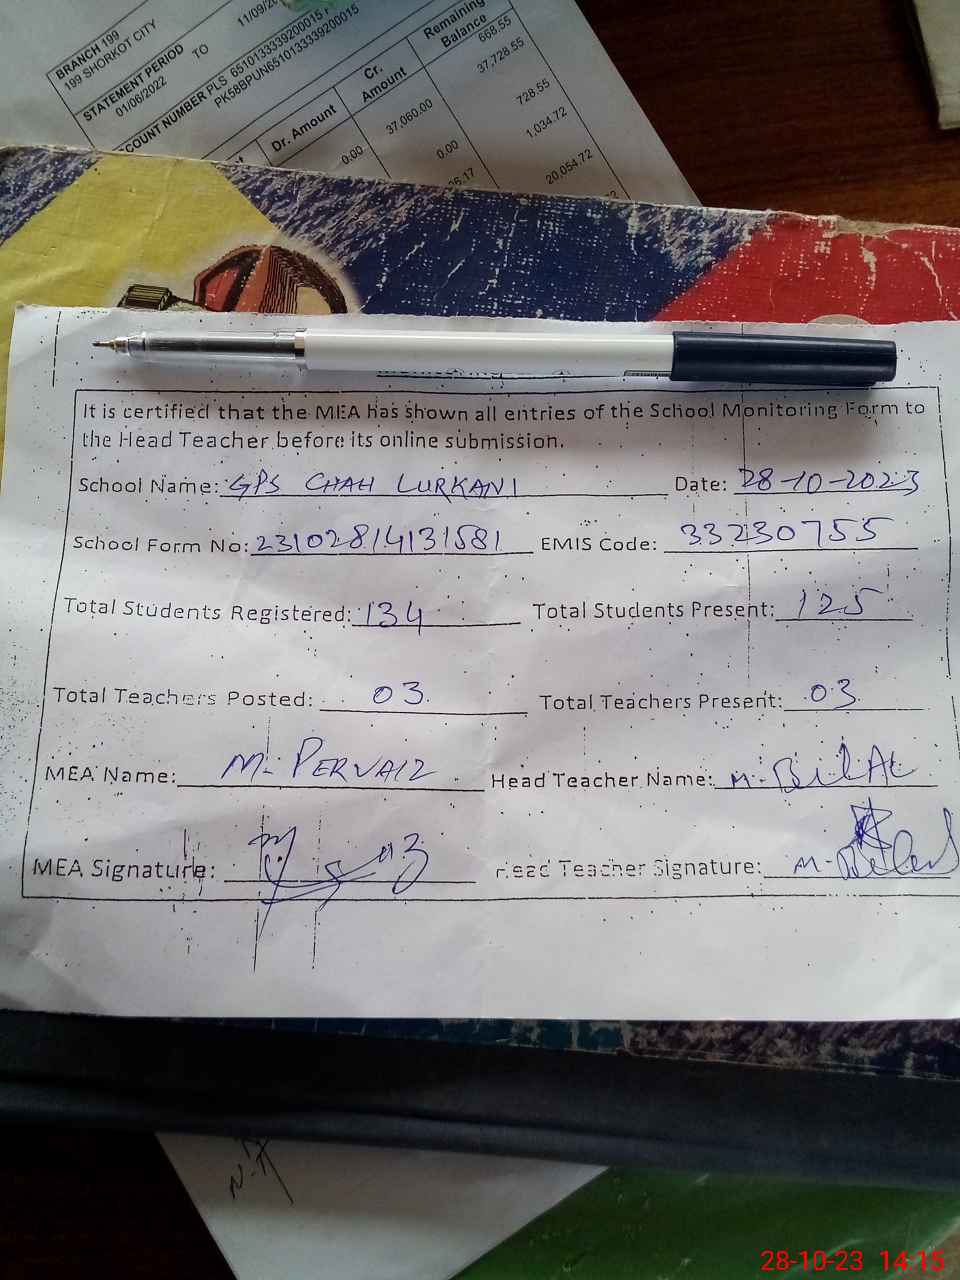 BRANCH 199
199 SHORKOT CITY
STATEMENT PERIOD
01/08/2022 TO
COUNT NUMBER PLS 6510133339200015
PK58BPUN6510133339200015
Dr. Amount Cr. Amount Remaining Balance
668.55
37,060.00 37,728.55
0.00 0.00 728.55
1,034.72
20,054.72
It is certified that the MEA has shown all entries of the School Monitoring Form to
the Head Teacher before its online submission.
School Name: GPS CHAH LURKANI Date: 28-10-2023
School Form No: 23102814131581 EMIS Code: 33230755
Total Students Registered: 134 Total Students Present: 125
Total Teachers Posted: 03 Total Teachers Present: 03
MEA Name: M. PERVAIZ Head Teacher Name: M. BilAL
MEA Signature: Head Teacher Signature: M. Bilal
28-10-23 14:15